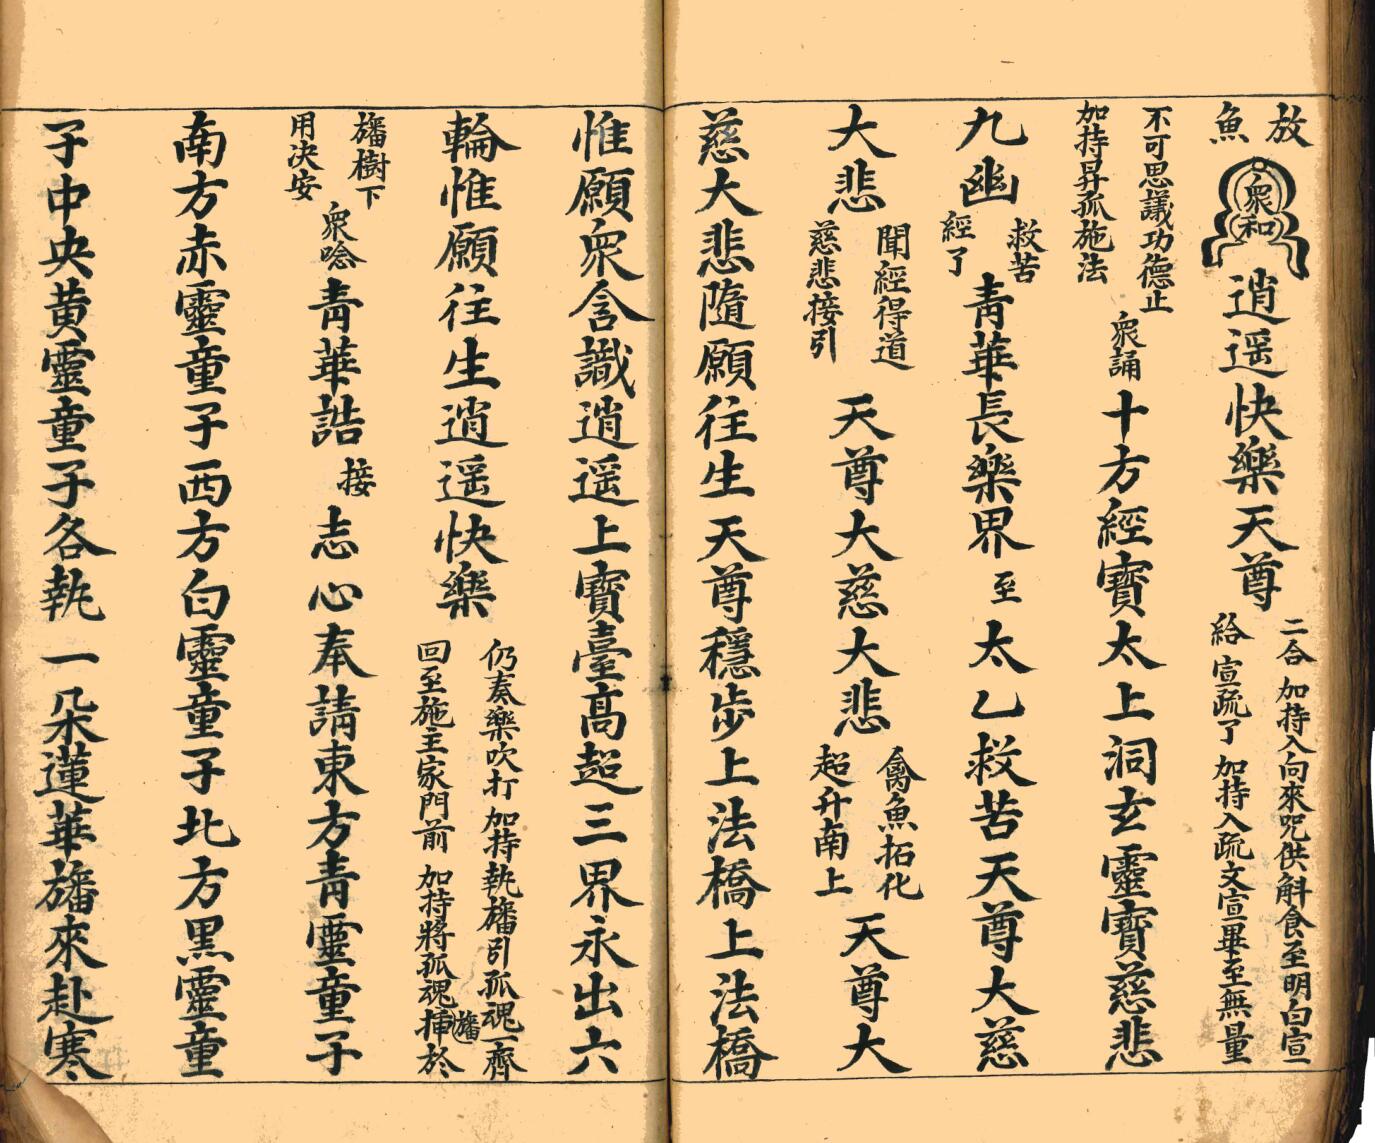 放魚 衆和 逍遥快樂天尊 二合 加持入向來咒供斛食至明白宣
給 宣疏了 加持入疏文宣畢至無量
不可思議功德止
加持昇孤施法 衆誦 十方經寶太上洞玄靈寶慈悲
九幽 救苦經了 青華長樂界 至 太乙救苦天尊大慈
大悲 聞經得道
慈悲接引 天尊大慈大悲 禽魚拓化
超升南上 天尊大
慈大悲隨願往生天尊穩步上法橋上法橋
惟願衆含識逍遥上寶臺高超三界永出六
輪惟願往生逍遥快樂 仍奏樂吹打 加持執旛引孤魂一齊
回至施主家門前 加持將孤魂旛插於
旛樹下
用決安 衆唸 青華誥 接 志心奉請東方青靈童子
南方赤靈童子西方白靈童子北方黑靈童
子中央黄靈童子各執一朵蓮華旛來赴寒